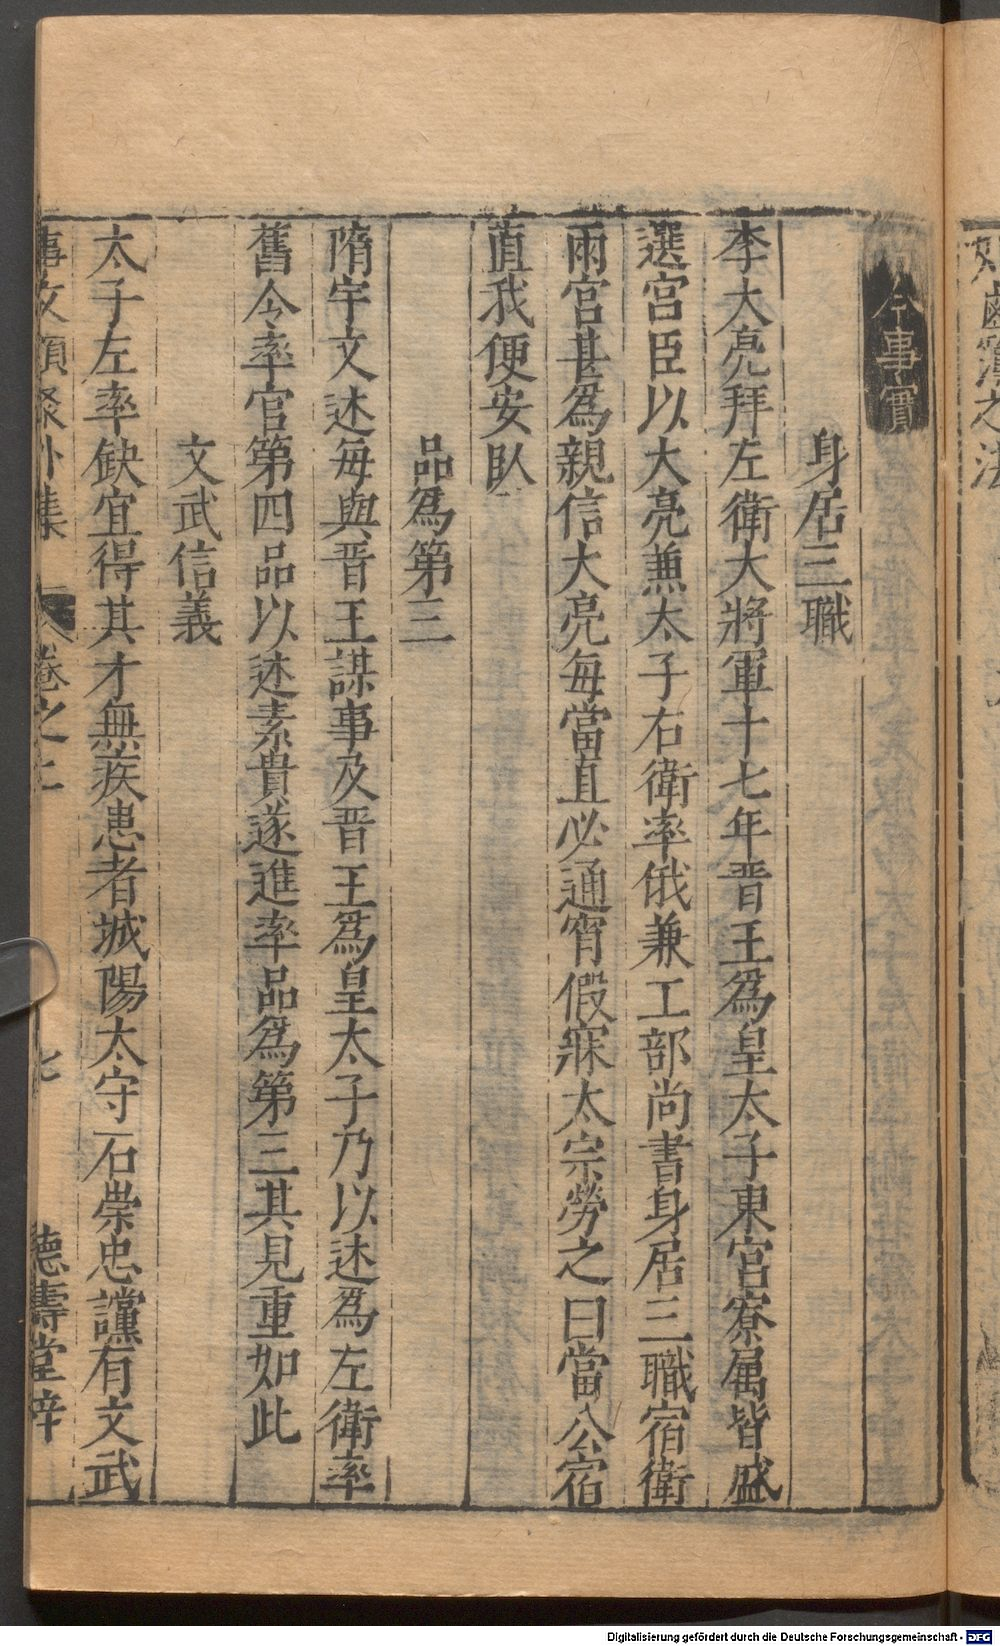 今事實
身居三職
李大亮拜左衛大將軍十七年晋王爲皇太子東宮寮属皆盛
選宮臣以大亮兼太子右衛率俄兼工部尚書身居三職宿衛
兩宮甚爲親信大亮每當直必通宵假寐太宗勞之曰當公宿
直我便安臥
品爲第三
隋宇文述每與晋王謀事及晋王爲皇太子乃以述爲左衛率
舊令率官第四品以述素貴遂進率品爲第三其見重如此
文武信義
太子左率缺宜得其才無疾患者城陽太守石崇忠讜有文武
事文類聚外集 卷之七 德壽堂梓
Digitalisierung gefördert durch die Deutsche Forschungsgemeinschaft - DFG